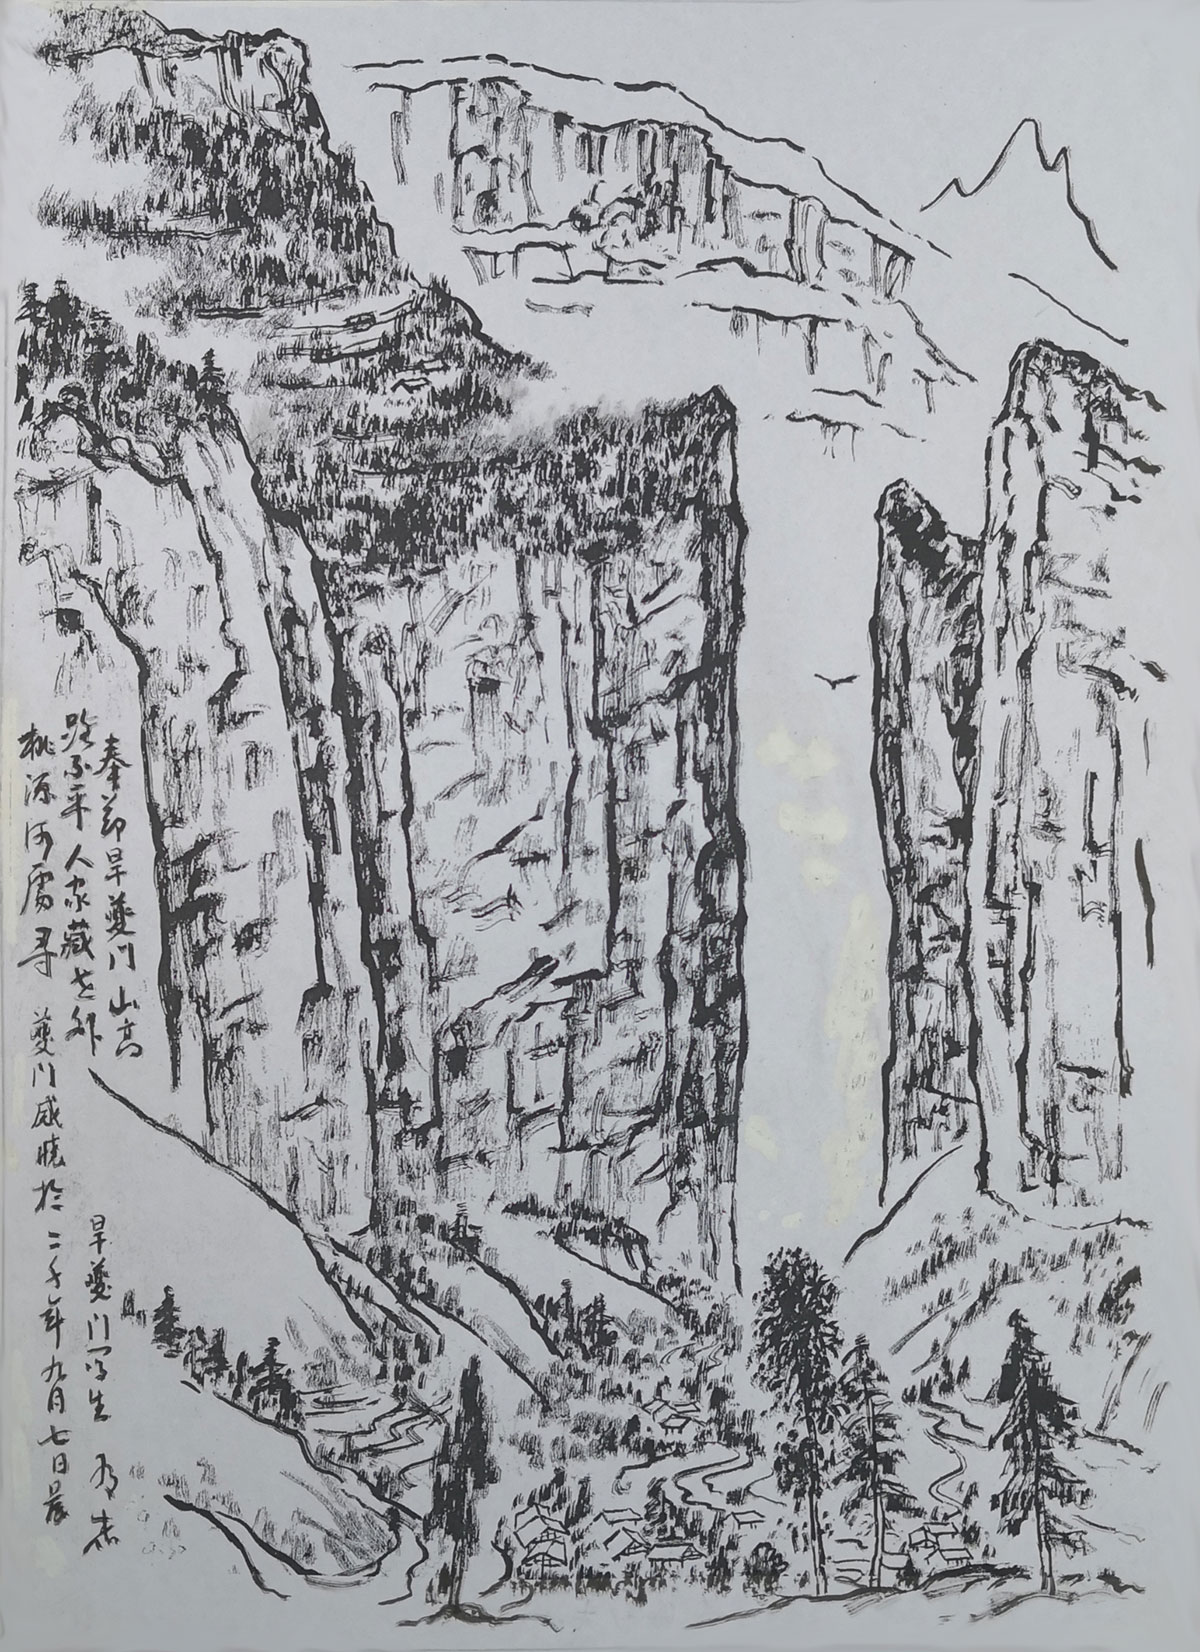 奉节旱夔门 山高
路不平 人家藏世外
桃源何處寻
夔门 於二千年九月七日晨
旱夔门写生